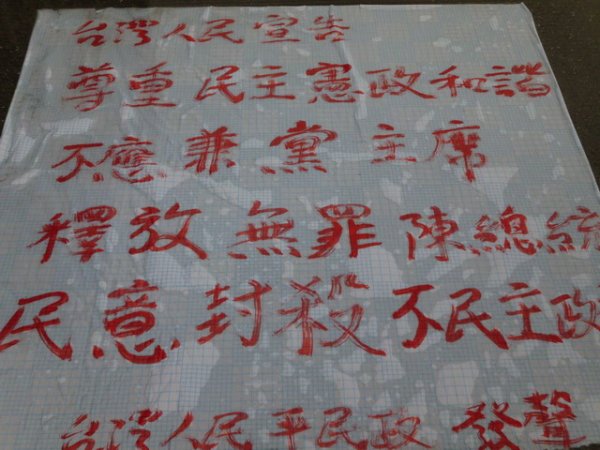 台灣人民宣告
尊重民主憲政和諧
不應兼黨主席
釋放無罪陳總統
民意封殺不民主政
台灣人民平民政發聲